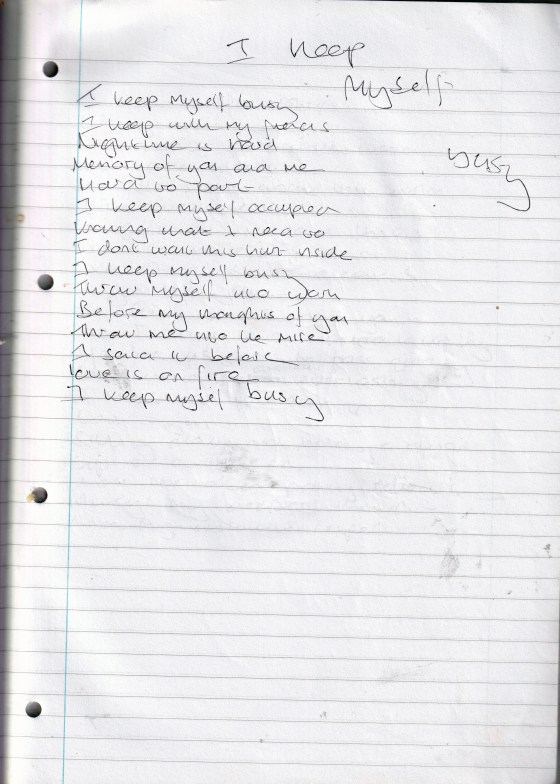 I Keep
Myself
busy
I keep myself busy
I keep with my friends
Nightime is hard
Memory of you and me
Hard to part
I keep myself occupied
Knowing that I need to
I dont want this hurt inside
I keep myself busy
Throw myself into work
Before my thoughts of you
Throw me into the mire
I said it before
Love is on fire
I keep myself busy